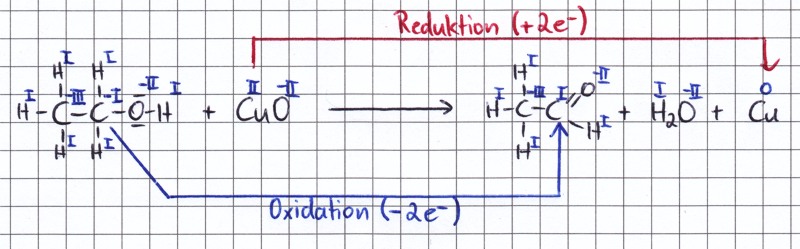 Reduktion (+2e⁻)
I I -II I II -II I I -II I -II 0
H H H O
I -III -I I -III I
H-C-C-O-H + CuO ⟶ H-C-C + H₂O + Cu
H H H H
I I I I
Oxidation (-2e⁻)